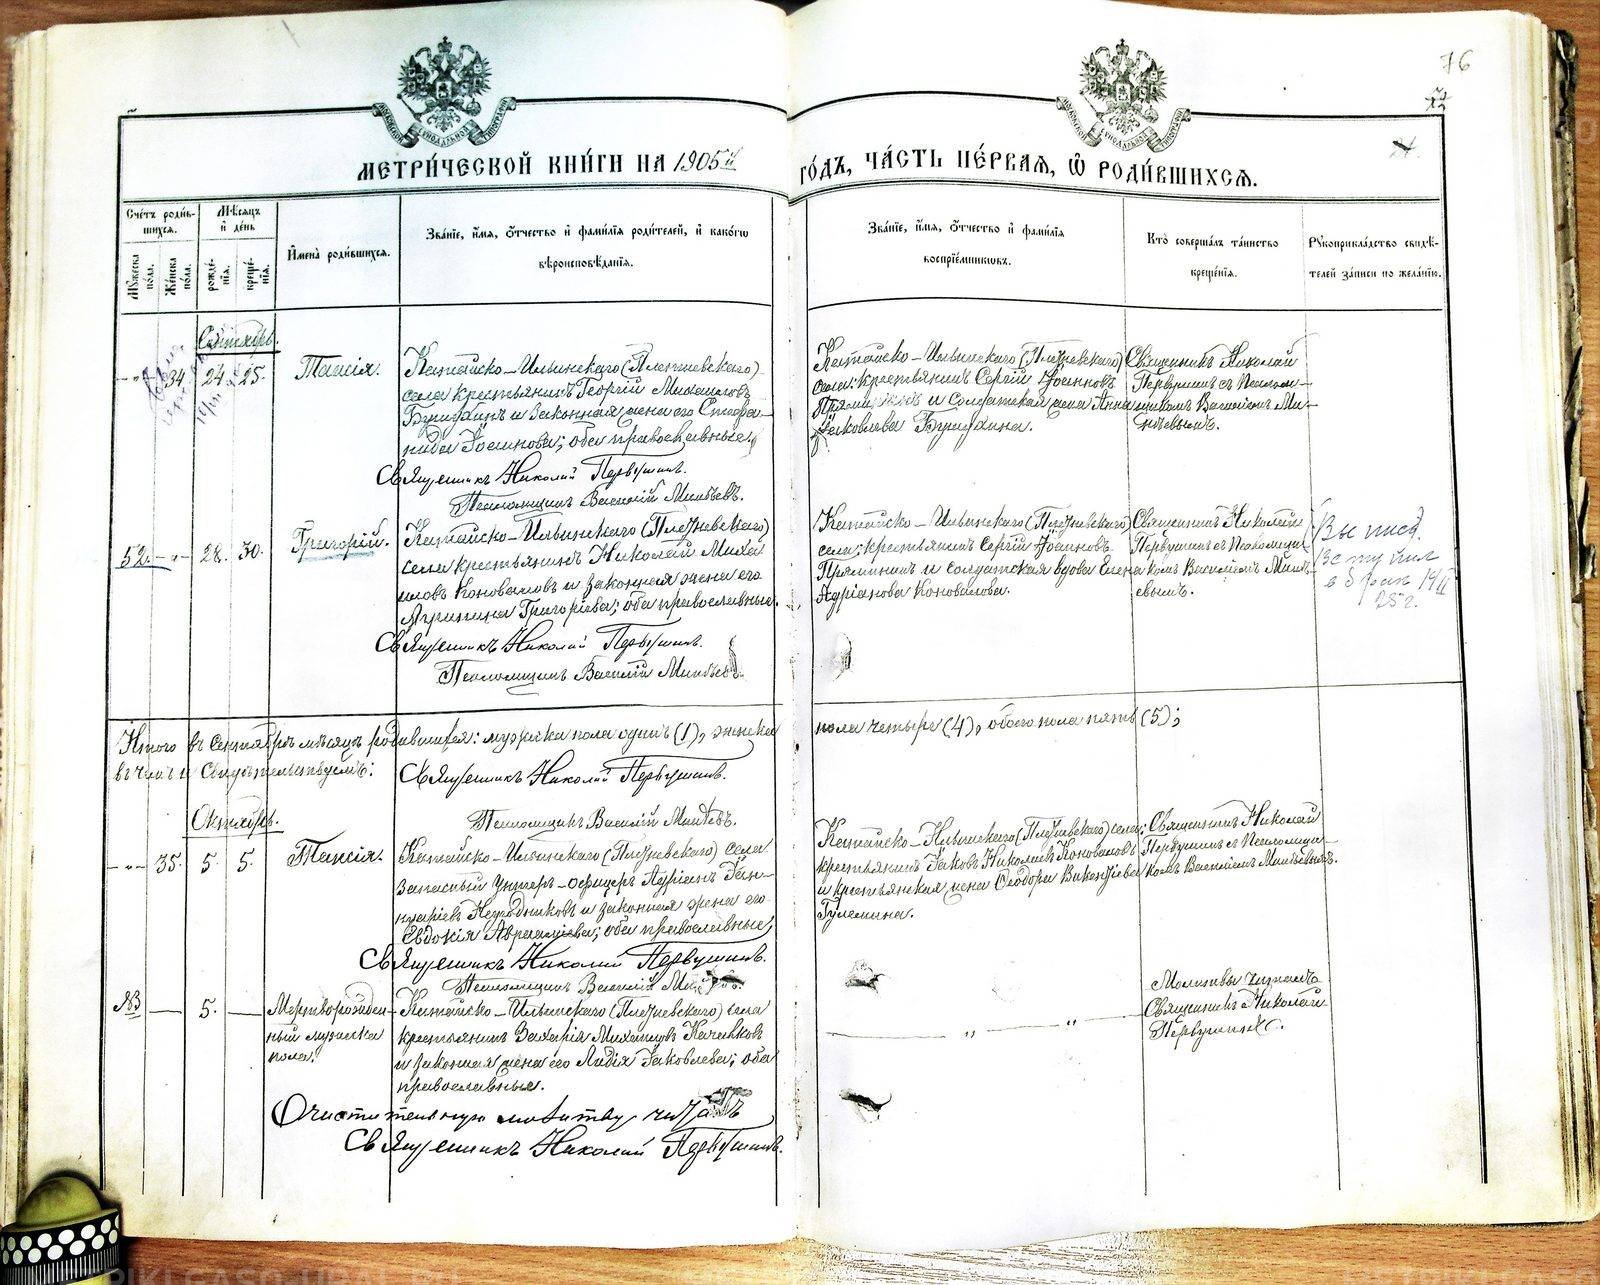 76
МОСКОВСКОЙ СѴНОДАЛЬНОЙ ТИПОГРАФІИ
МОСКОВСКОЙ СѴНОДАЛЬНОЙ ТИПОГРАФІИ
МЕТРИ́ЧЕСКОЙ КНИ́ГИ НА 1905й
ГО́ДЪ, ЧА́СТЬ ПЕ́РВАЯ, Ѡ҆ РОДИ́ВШИХСЯ.
Сче́тъ роди́в-
шихся.
Мѣ́сяцъ
и҆ де́нь
Мꙋ́жеска
по́ла.
Же́нска
по́ла.
рожде́-
нія.
креще́-
нія.
И҆мена̀ роди́вшихся.
Зва́ніе, и҆́мя, ѻ҆́тчество и҆ фами́лія роди́телей, и҆ како́гѡ
вѣроисповѣ́данія.
Зва́ніе, и҆́мя, ѻ҆́тчество и҆ фами́лія
воспріе́мникѡвъ.
Кто̀ соверша́лъ та́инство
креще́нія.
Рꙋкоприкла́дство свидѣ́-
телей за́писи по жела́нію.
Сентябрь.
34. 24. 25.
Таисія.
Катайско-Ильинскаго (Плетневскаго)
села крестьянинъ Георгій Михаиловъ
и законная жена его Стефа-
нида Іоаннова; оба православные.
Священникъ Николай Первушинъ.
Псаломщикъ Василій
Катайско-Ильинскаго (Плетневскаго)
села: крестьянинъ Сергій Іоанновъ
и солдатская жена Анна
Іаковлева
Священникъ Николай
Первушинъ съ Псалом-
щикомъ Василіемъ
52. - " - 28. 30.
Григорій.
Катайско-Ильинскаго (Плетневскаго)
села крестьянинъ Николай Миха
иловъ Коноваловъ и законная жена его
Григоріева; оба православные.
Священникъ Николай Первушинъ.
Псаломщикъ Василій
Катайско-Ильинскаго (Плетневскаго)
села: крестьянинъ Сергій Іоанновъ
и солдатская вдова Елена
Адріанова Коновалова.
Священникъ Николай
Первушинъ съ Псаломщи-
комъ Василіемъ
Выписд.
Вступил
в брак 14/II
25 г.
Итого въ Сентябрѣ мѣсяцѣ родившихся: мужеска пола одинъ (1), женска
пола четыре (4), обоего пола пять (5);
въ чемъ и свидѣтельствуемъ:
Священникъ Николай Первушинъ.
Псаломщикъ Василій
Октябрь.
- " - 35. 5. 5.
Таисія.
Катайско-Ильинскаго (Плетневскаго) села
запасный унтеръ-офицеръ Адріанъ
и законная жена его
Евдокія Авраміева; оба православные.
Священникъ Николай Первушинъ.
Псаломщикъ Василій
Катайско-Ильинскаго (Плетневскаго) села:
крестьянинъ Іаковъ Николаевъ Коноваловъ
и крестьянская жена Ѳеодора Викентіева
Гулемина.
Священникъ Николай
Первушинъ съ Псаломщи-
комъ Василіемъ
№3 — 5. —
Мертворожден-
ный мужеска
пола.
Катайско-Ильинскаго (Плетневскаго) села
крестьянинъ Захарія Михаиловъ
и законная жена его Лидія Іаковлева; оба
православные.
Очистительную молитву читалъ
Священникъ Николай Первушинъ.
" "
Молитвы читалъ
Священникъ Николай
Первушинъ.